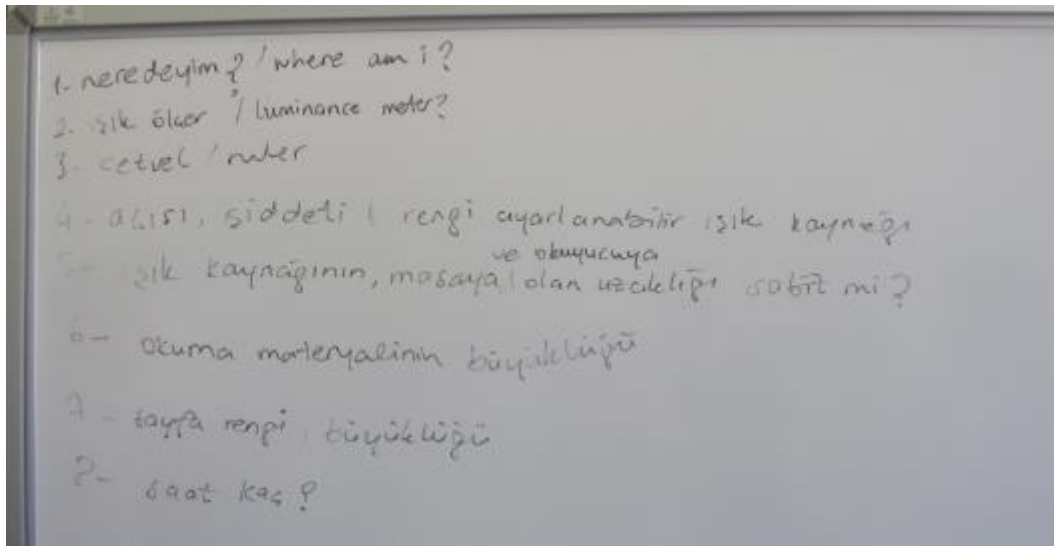 1- neredeyim? / where am i?
2. ışık ölçer / luminance meter?
3. cetvel / ruler
4- açısı, şiddeti, rengi ayarlanabilir ışık kaynağı
ve okuyucuya
5- ışık kaynağının, masaya olan uzaklığı sabit mi?
6- okuma materyalinin büyüklüğü
7- sayfa rengi, büyüklüğü
8- saat kaç?